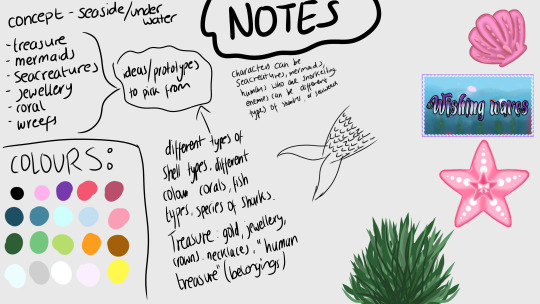 NOTES
concept - seaside/under
water
- treasure
- mermaids
- seacreatures
- jewellery
- coral
- wreefs
ideas/prototypes
to pick from
characters can be
seacreatures, mermaids,
humans who are snorkeling.
enemies can be different
types of sharks, or seaweed
different types of
shell types, different
colour corals, fish
types, species of sharks.
Treasure: gold, jewellery,
crowns, necklaces, "human
treasure" (belongings)
COLOURS:
Wishing waves